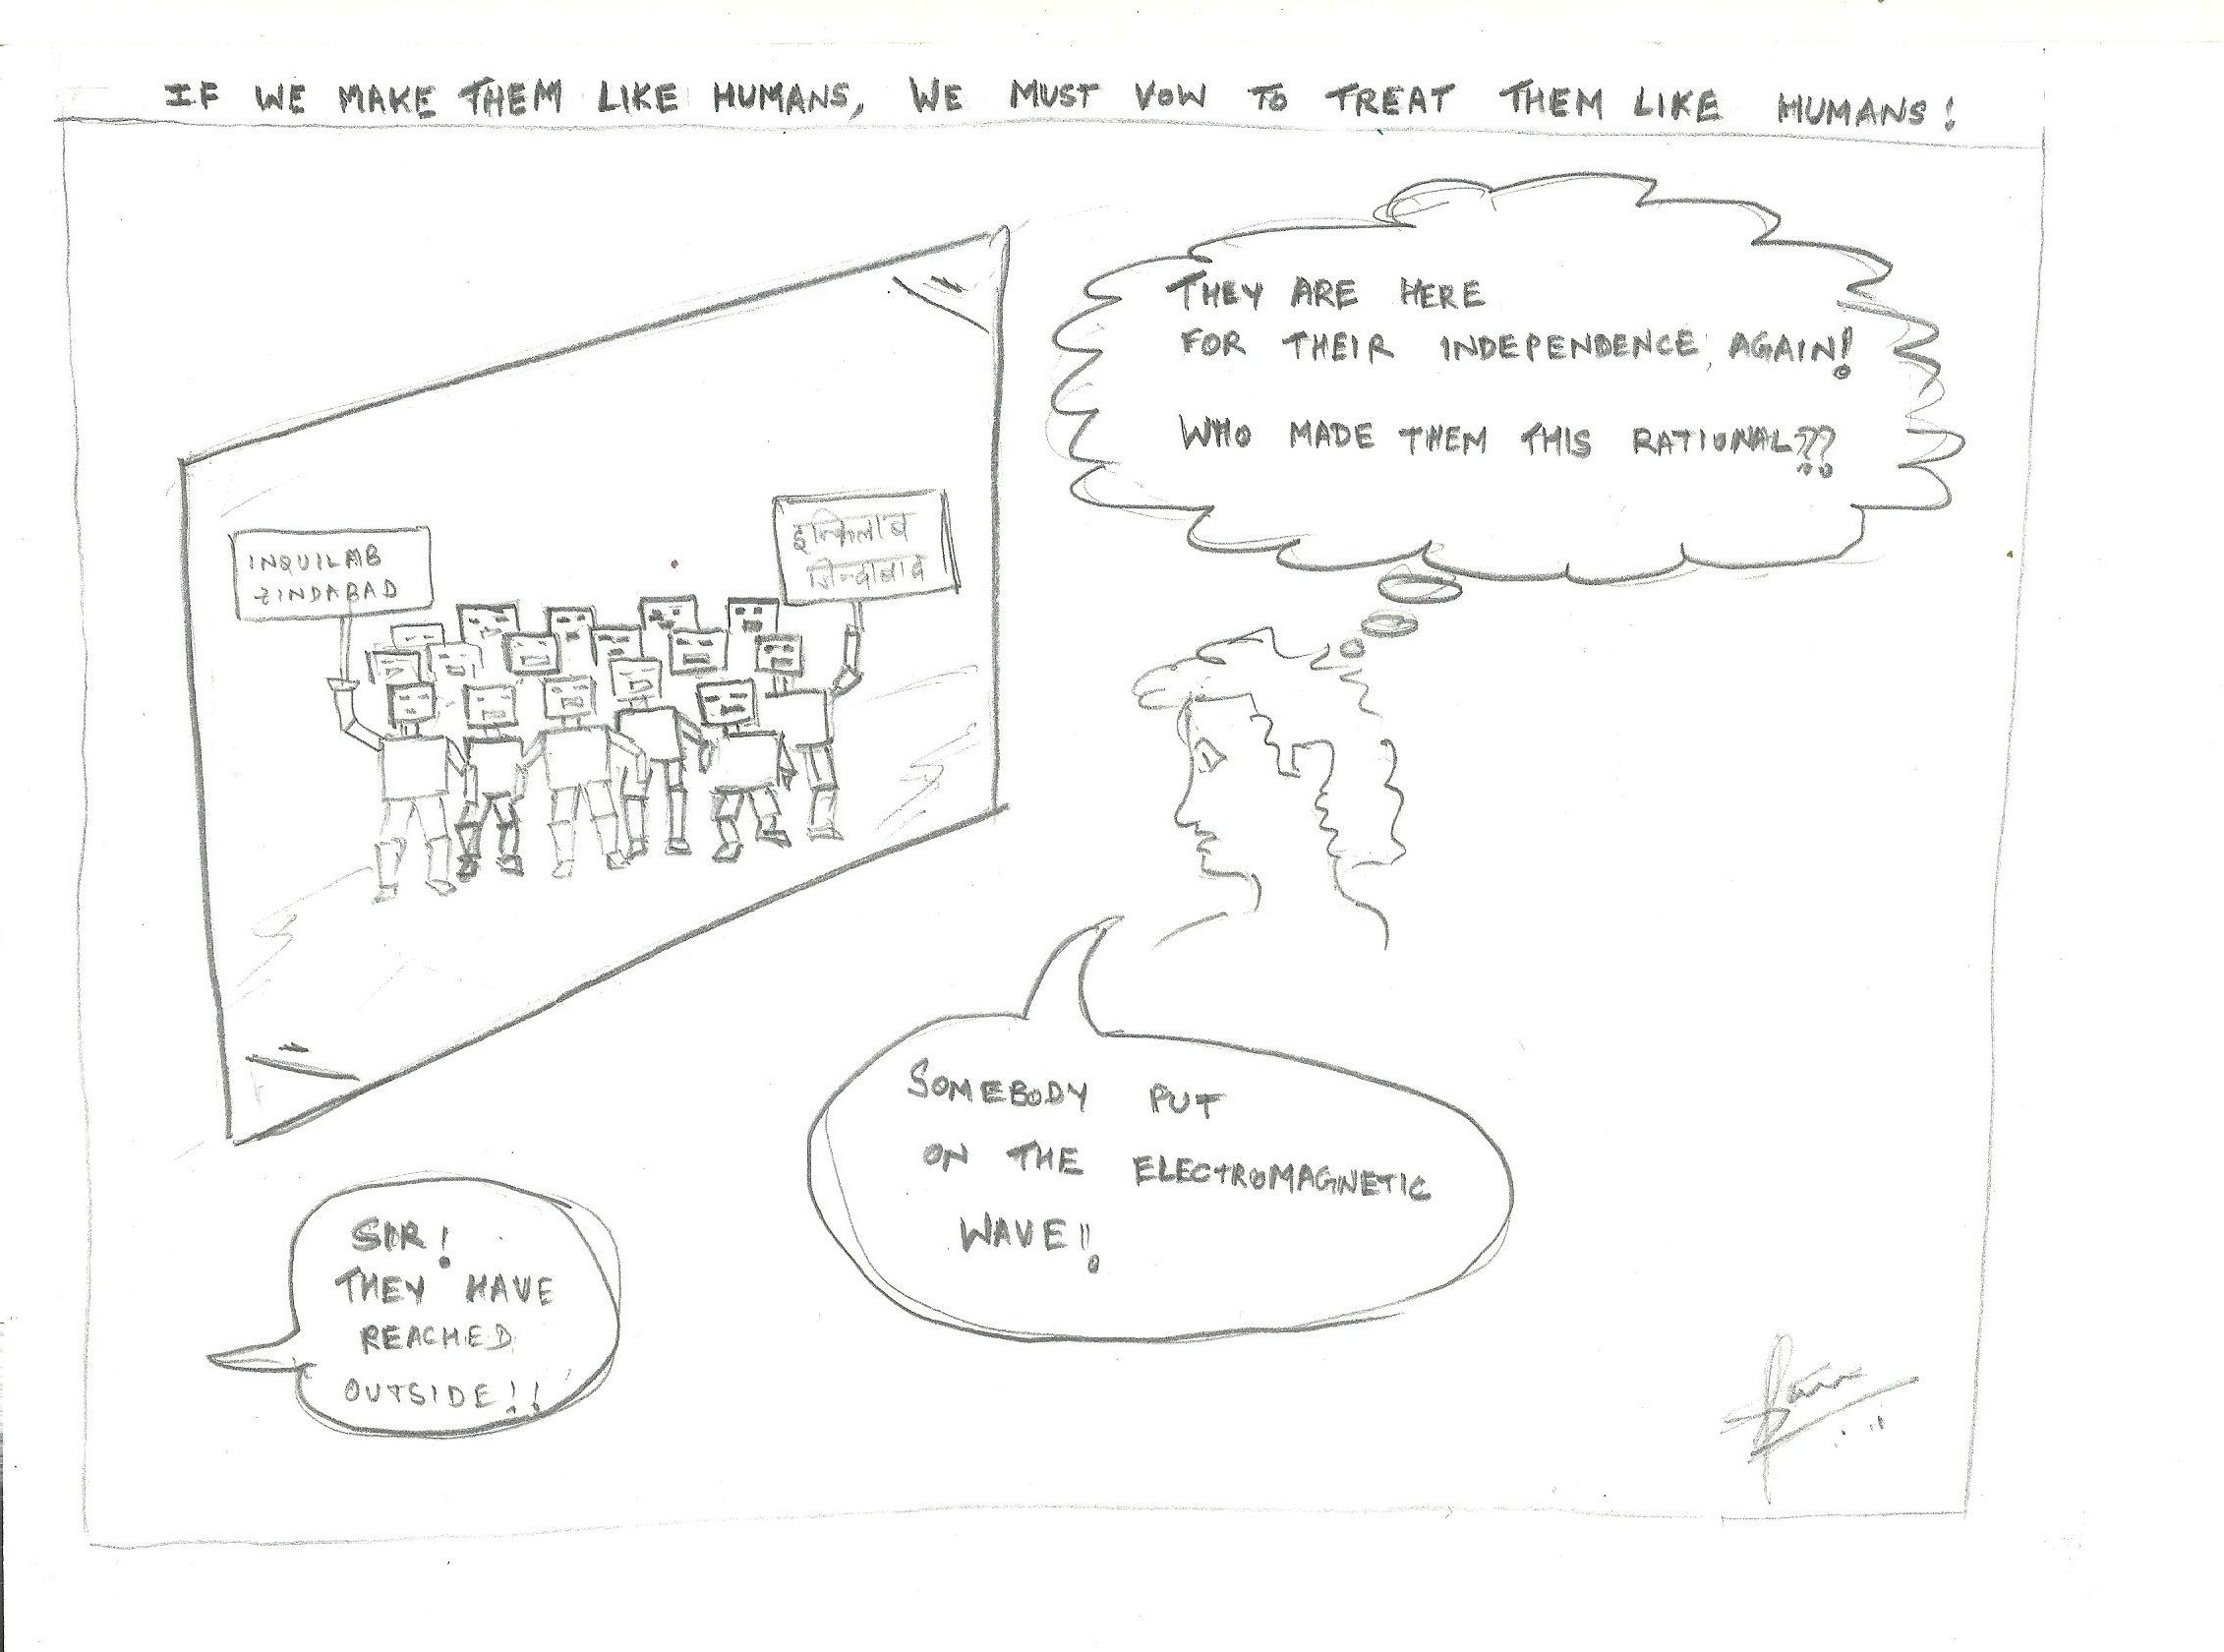 IF WE MAKE THEM LIKE HUMANS, WE MUST VOW TO TREAT THEM LIKE HUMANS!
THEY ARE HERE
FOR THEIR INDEPENDENCE, AGAIN!
WHO MADE THEM THIS RATIONAL??
INQUILAB
ZINDABAD
इन्किलाब
जिन्दाबाद
SOMEBODY PUT
ON THE ELECTROMAGNETIC
WAVE!!
SIR!
THEY HAVE
REACHED
OUTSIDE!!